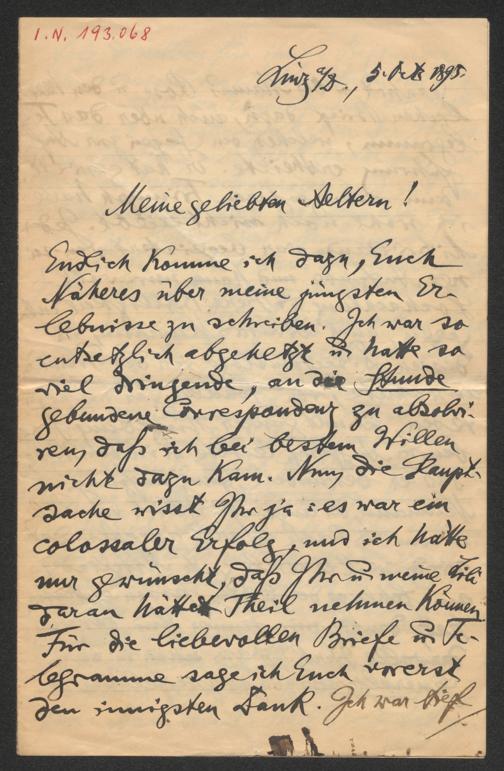 I.N. 193.068
Linz a/D., 5. Okt 1895.
Meine geliebten Aeltern!
Endlich komme ich dazu, Euch
Näheres über meine jüngsten Er-
lebnisse zu schreiben. Ich war so
entsetzlich abgehetzt u hatte so
viel dringende, an die Stunde
gebundene Correspondenz zu absolvi-
ren, daß ich bei bestem Willen
nicht dazu kam. Nun, die Haupt-
sache wisst Ihr ja: es war ein
colossaler Erfolg, und ich hätte
nur gewünscht, daß Ihr u meine Lili
daran hättet Theil nehmen können.
Für die liebevollen Briefe u Te-
legramme sage ich Euch vorerst
den innigsten Dank. Ich war tief